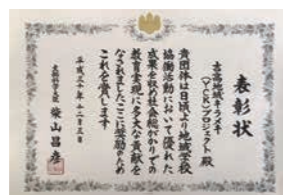 表彰状
吉高地域キラメキ
(YCK)プロジェクト殿
貴団体は日頃より地域学校
協働活動において優れた
成果を収め社会総がかりでの
教育実現に多大な貢献を
なされましたここに奨励のため
これを賞します
平成三十年十二月三日
文部科学大臣 柴山昌彦